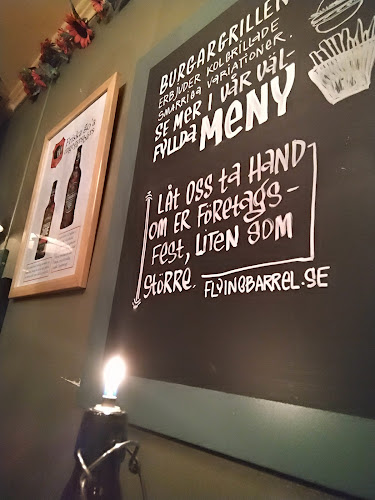 BURGARGRILLEN
ERBJUDER KOLGRILLADE
SMARRIGA VARIATIONER.
SE MER I VÅR VÄL-
FYLLDA MENY
LÅT OSS ta HAND
OM ER FÖRETAGS-
FEST, LITEN SOM
STÖRRE. FLYINGBARREL.SE